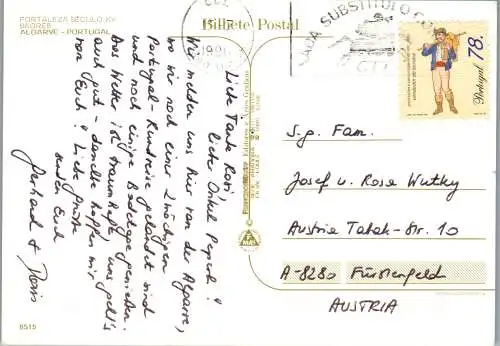 FORTALEZA SÉCULO XV
SAGRES
ALGARVE - PORTUGAL
Bilhete Postal
CADA SUBSTITUI O
CTT
Portugal 78.
Liebe Tante Rosi,
lieber Onkel Pepi!
Wir melden uns hier von der Algarve,
wo wir nach einer 2 wöchigen
Portugal-Rundreise gelandet sind
und noch einige Badetage genießen.
Das Wetter ist traumhaft, uns geht's
auch gut - dasselbe hoffen wir
von Euch! Liebe Grüße
senden Euch
Gerhard + Doris
S.g. Fam.
Josef u. Rosa Wutky
Austria Tabak-Str. 10
A-8280 Fürstenfeld
AUSTRIA
6515